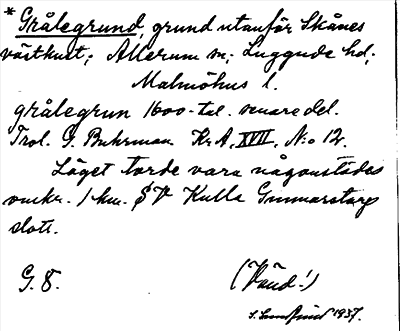 * Grålegrund, grund utanför Skånes
västkust; Allerum sn; Luggude hd;
Malmöhus l.
grålegrun 1600-tal. senare del.
Trol. G. Buhrman Kr.A. XVII, N:o 12.
Läget torde vara någonstädes
omkr. 1 km. SV Kulla Gunnarstorps
slott.
G. 8. (Vänd!)
1937.